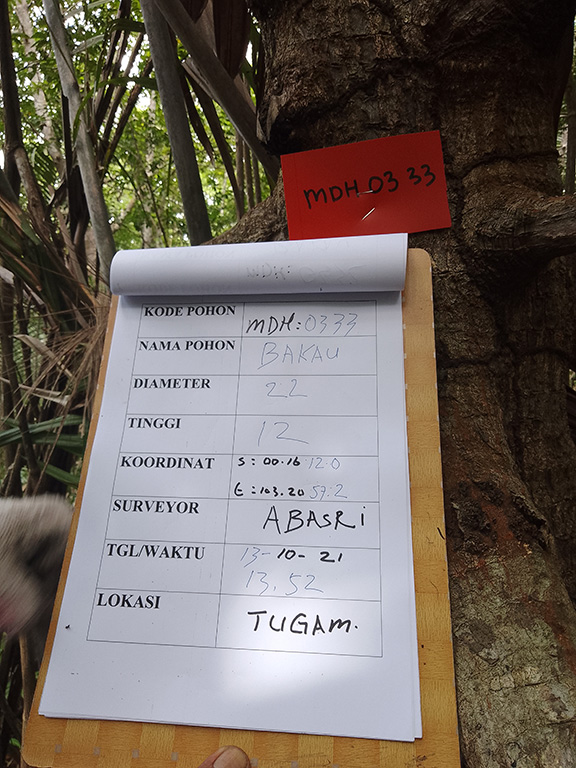 MDH_03 33
KODE POHON MDH: 0333
NAMA POHON BAKAU
DIAMETER 22
TINGGI 12
KOORDINAT S: 00.16 12.0
E: 103.20 59.2
SURVEYOR ABASRi
TGL/WAKTU 13-10-21
13.52
LOKASI TUGAM.